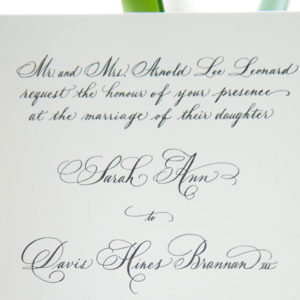 Mr. and Mrs. Arnold Lee Leonard
request the honour of your presence
at the marriage of their daughter
Sarah Ann
to
Davis Hines Brannan III